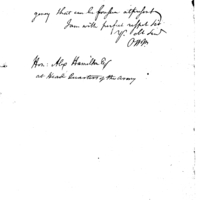 gency that can be foreseen at present
I am with perfect respect Sir
Yr. obt Servt
Hon: Alex Hamilton Esq
at Head Quarters of the Army